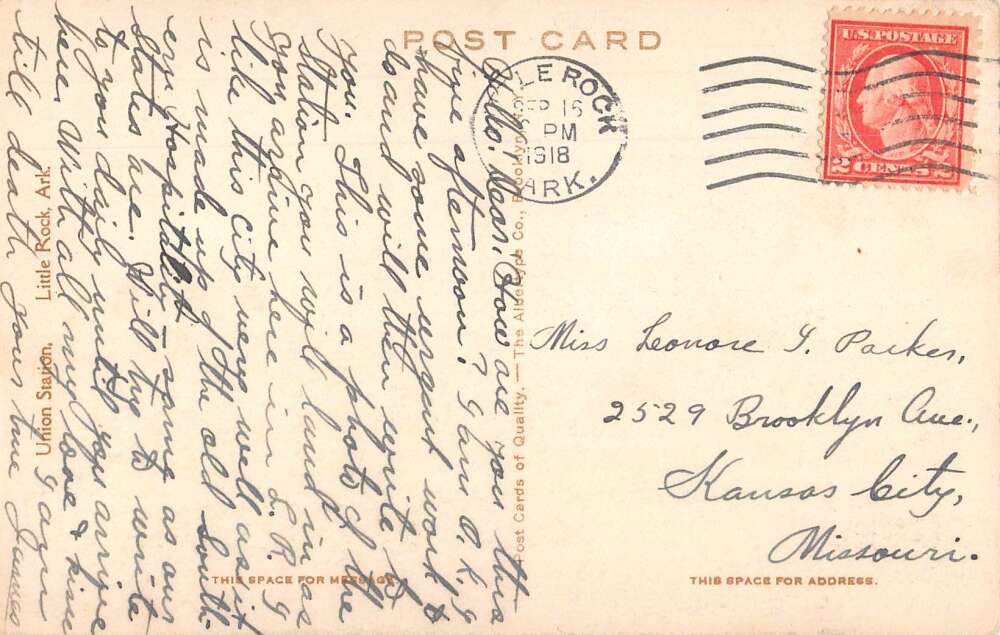 POST CARD
LITTLE ROCK
SEP 16
PM
1918
ARK.
U.S. POSTAGE
2 CENTS 2
Hello. Dear: How are you this
bye afternoon? I am O.K. I
have some urgent work to
do and will then write to
you. This is a photo of the
Station you will land in as
you arrive here in L.R. I
like this city very well as it
is made up of the old South-
ern Hospitality - same as our
States are. Will try to write
to you daily until you arrive
here. With all my love & kisses
I am
till death your true James
Union Station, Little Rock, Ark.
Post Cards of Quality. — The Albertype Co., Brooklyn
Miss Leonore Y. Parker,
2529 Brooklyn Ave.,
Kansas City,
Missouri.
THIS SPACE FOR MESSAGE.
THIS SPACE FOR ADDRESS.